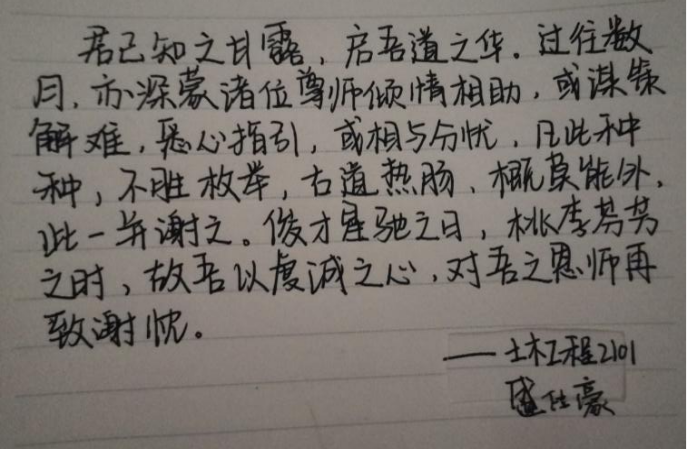 君已知之甘露,启吾道之华。过往数
月,亦深蒙诸位尊师倾情相助,或谋策
解难,悉心指引,或相与分忧,凡此种
种,不胜枚举,古道热肠,概莫能外,
此一并谢之。俊才星驰之日,桃李芬芳
之时,故吾以虔诚之心,对吾之恩师再
致谢忱。
——土木工程2101
盛仕豪